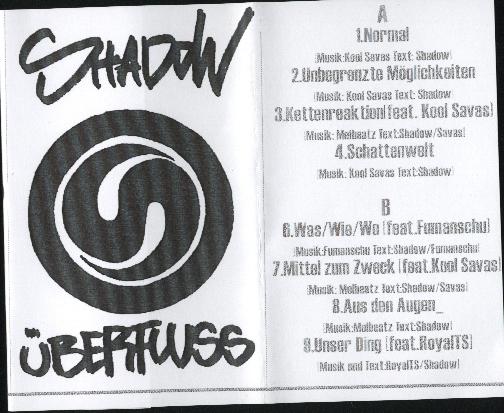 SHADOW
ÜBERFLUSS
A
1.Normal
(Musik:Kool Savas Text: Shadow)
2.Unbegrenzte Möglichkeiten
(Musik: Kool Savas Text: Shadow)
3.Kettenreaktion(feat. Kool Savas)
(Musik: Melbeatz Text:Shadow/Savas)
4.Schattenwelt
(Musik: Kool Savas Text:Shadow)
B
6.Was/Wie/Wo (feat.Fumanschu)
(Musik:Fumanschu Text:Shadow/Fumanschu)
7.Mittel zum Zweck (feat.Kool Savas)
(Musik: Melbeatz Text:Shadow/Savas)
8.Aus den Augen_
(Musik:Melbeatz Text:Shadow)
9.Unser Ding (feat.RoyalTS)
(Musik und Text:RoyalTS/Shadow)